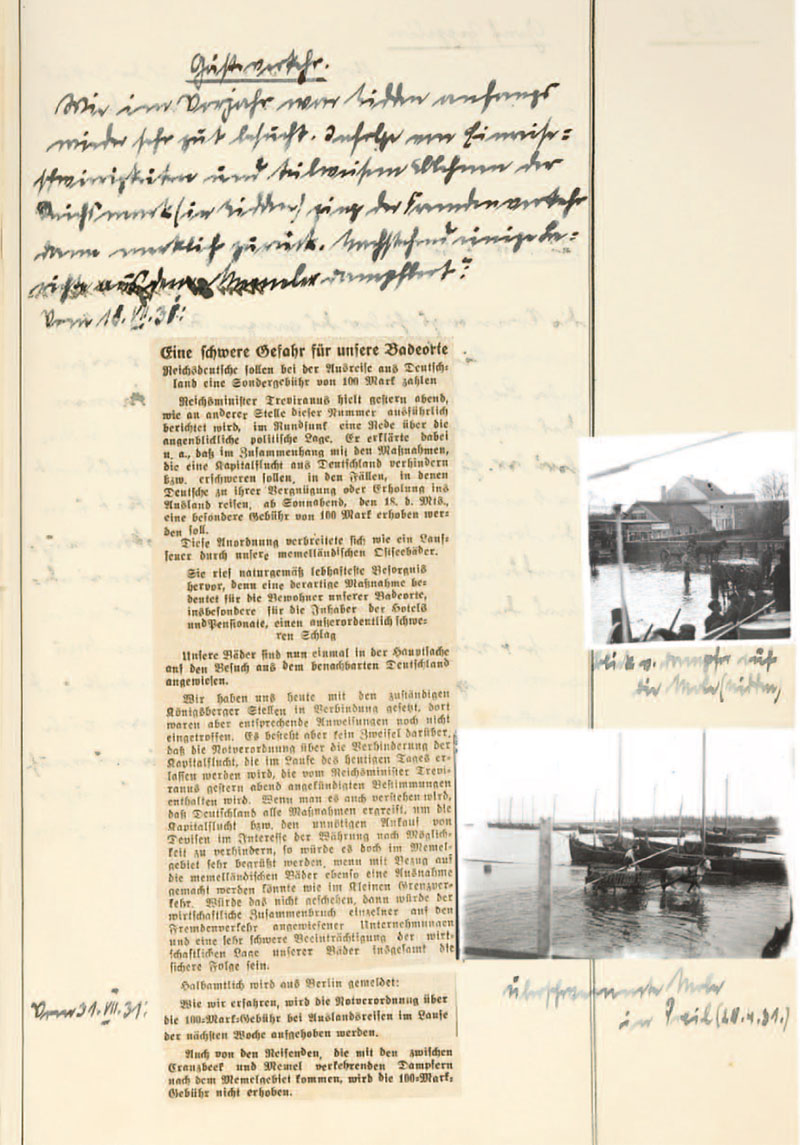 Gästeverkehr.
Wie im Vorjahr war Nidden anfangs
wieder sehr gut besucht. Infolge von Einreise=
schwierigkeiten und teilweisem Ablehnen der
Reichsmark (in Nidden) ging der Fremdenverkehr
dann merklich zurück. Nachstehend einige Be=
richte aus dem Memeler Dampfboot:
Vom 18. VII. 31:
Eine schwere Gefahr für unsere Badeorte
Reichsdeutsche sollen bei der Ausreise aus Deutsch-
land eine Sondergebühr von 100 Mark zahlen
Reichsminister Treviranus hielt gestern abend,
wie an anderer Stelle dieser Nummer ausführlich
berichtet wird, im Rundfunk eine Rede über die
augenblickliche politische Lage. Er erklärte dabei
u. a., daß im Zusammenhang mit den Maßnahmen,
die eine Kapitalflucht aus Deutschland verhindern
bzw. erschweren sollen, in den Fällen, in denen
Deutsche zu ihrer Vergnügung oder Erholung ins
Ausland reisen, ab Sonnabend, den 18. d. Mts.,
eine besondere Gebühr von 100 Mark erhoben wer-
den soll.
Diese Anordnung verbreitete sich wie ein Lauf-
feuer durch unsere memelländischen Ostseebäder.
Sie rief naturgemäß lebhafteste Besorgnis
hervor, denn eine derartige Maßnahme be-
deutet für die Bewohner unserer Badeorte,
insbesondere für die Inhaber der Hotels
und Pensionate, einen außerordentlich schwe-
ren Schlag
Unsere Bäder sind nun einmal in der Hauptsache
auf den Besuch aus dem benachbarten Deutschland
angewiesen.
Wir haben uns heute mit den zuständigen
Königsberger Stellen in Verbindung gesetzt, dort
waren aber entsprechende Anweisungen noch nicht
eingetroffen. Es besteht aber kein Zweifel darüber,
daß die Notverordnung über die Verhinderung der
Kapitalflucht, die im Laufe des heutigen Tages er-
lassen werden wird, die vom Reichsminister Trevi-
ranus gestern abend angekündigten Bestimmungen
enthalten wird. Wenn man es auch verstehen wird,
daß Deutschland alle Maßnahmen ergreift, um die
Kapitalflucht bzw. den unnötigen Ankauf von
Devisen im Interesse der Währung nach Möglich-
keit zu verhindern, so würde es doch im Memel-
gebiet sehr begrüßt werden, wenn mit Bezug auf
die memelländischen Bäder ebenso eine Ausnahme
gemacht werden könnte wie im Kleinen Grenzver-
kehr. Würde das nicht geschehen, dann würde der
wirtschaftliche Zusammenbruch einzelner auf den
Fremdenverkehr angewiesener Unternehmungen
und eine sehr schwere Beeinträchtigung der wirt-
schaftlichen Lage unserer Bäder insgesamt die
sichere Folge sein.
Vom 31. VII. 31:
Halbamtlich wird aus Berlin gemeldet:
Wie wir erfahren, wird die Notverordnung über
die 100-Mark-Gebühr bei Auslandsreisen im Laufe
der nächsten Woche aufgehoben werden.
Auch von den Reisenden, die mit den zwischen
Cranzbeek und Memel verkehrenden Dampfern
nach dem Memelgebiet kommen, wird die 100-Mark-
Gebühr nicht erhoben.
Blick v. Dampfer auf
die Mole (Nidden)
überschwemmte Mole
in (20.4.31.)